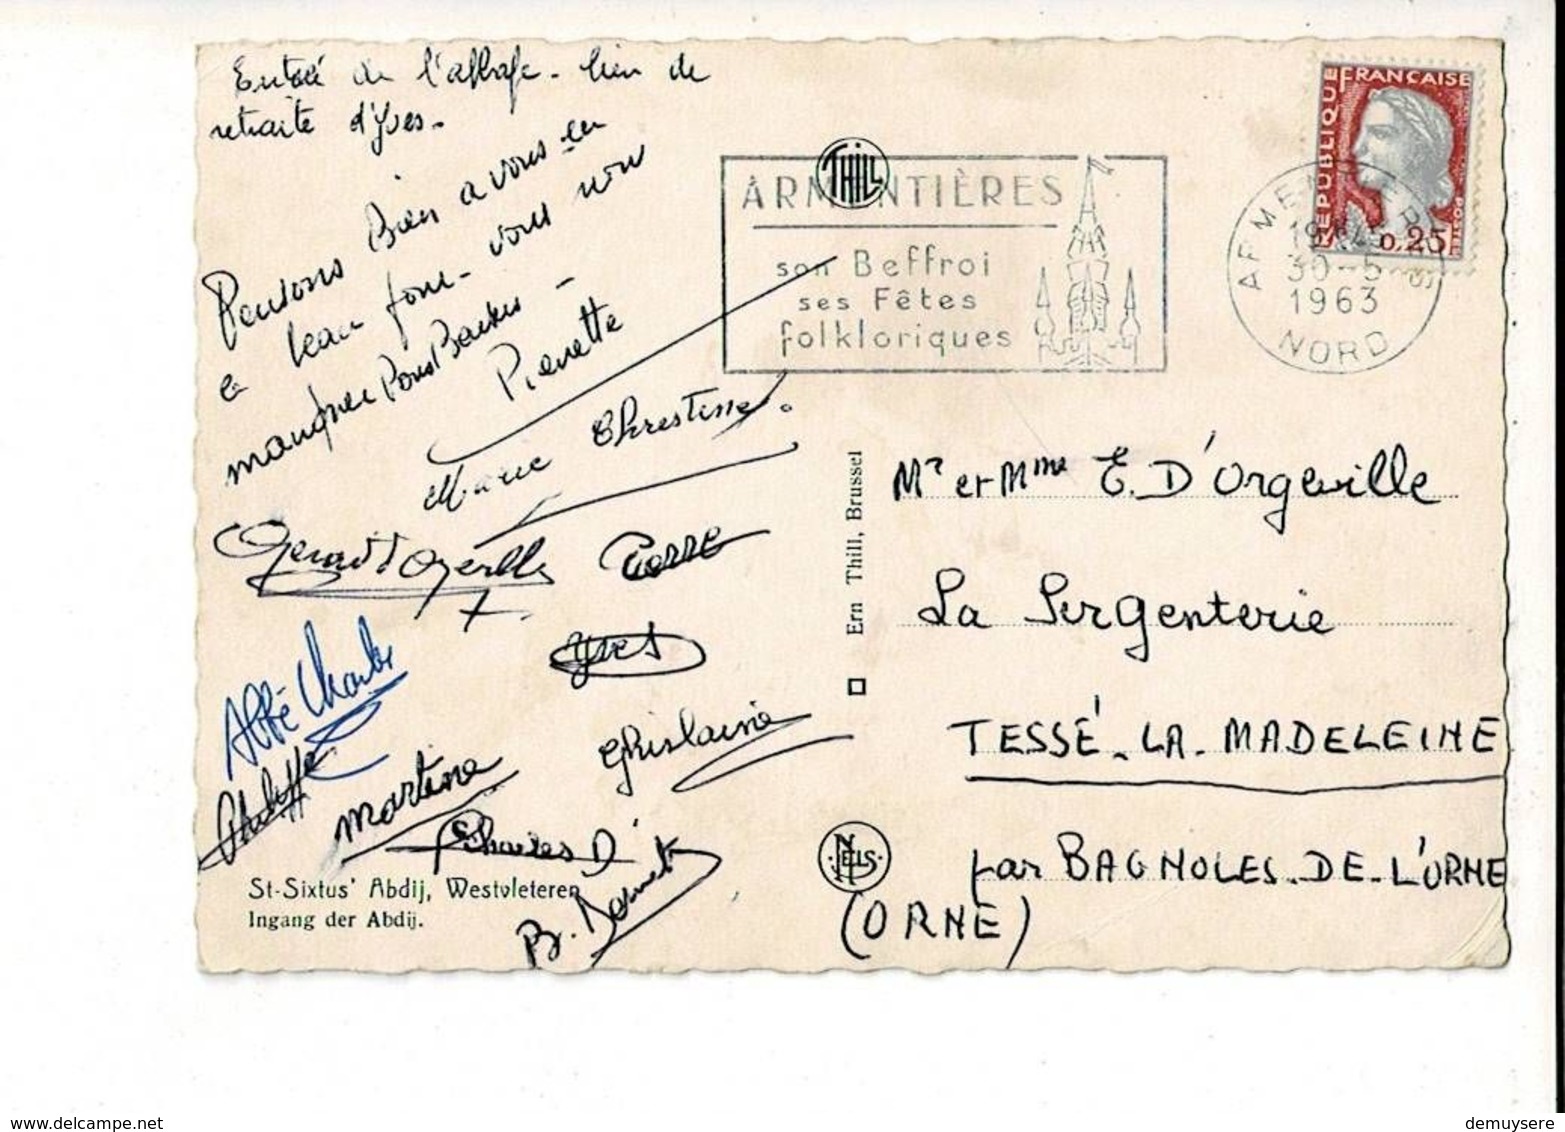 Entrée de l'abbaye - lieu de
retraite d'Yves -
Pensons Bien a vous en
ce beau jour - vous nous
manquez Bons Baisers -
Pierrette
Marie Christine.
Gérard d'Orgeville
Pierre
Yves
Abbé Charles
Philippe
Martine
Ghislaine
Charles D
B.
St-Sixtus' Abdij, Westvleteren
Ingang der Abdij.
THILL
Ern Thill, Brussel
NELS
ARMENTIÈRES
son Beffroi
ses Fêtes
folkloriques
ARMENTIERES
30-5
1963
NORD
REPUBLIQUE
FRANÇAISE
POSTES
0,25
Mr et Mme E. D'Orgeville
La Sergenterie
TESSÉ-LA-MADELEINE
par BAGNOLES-DE-L'ORNE
(ORNE)
demuysere